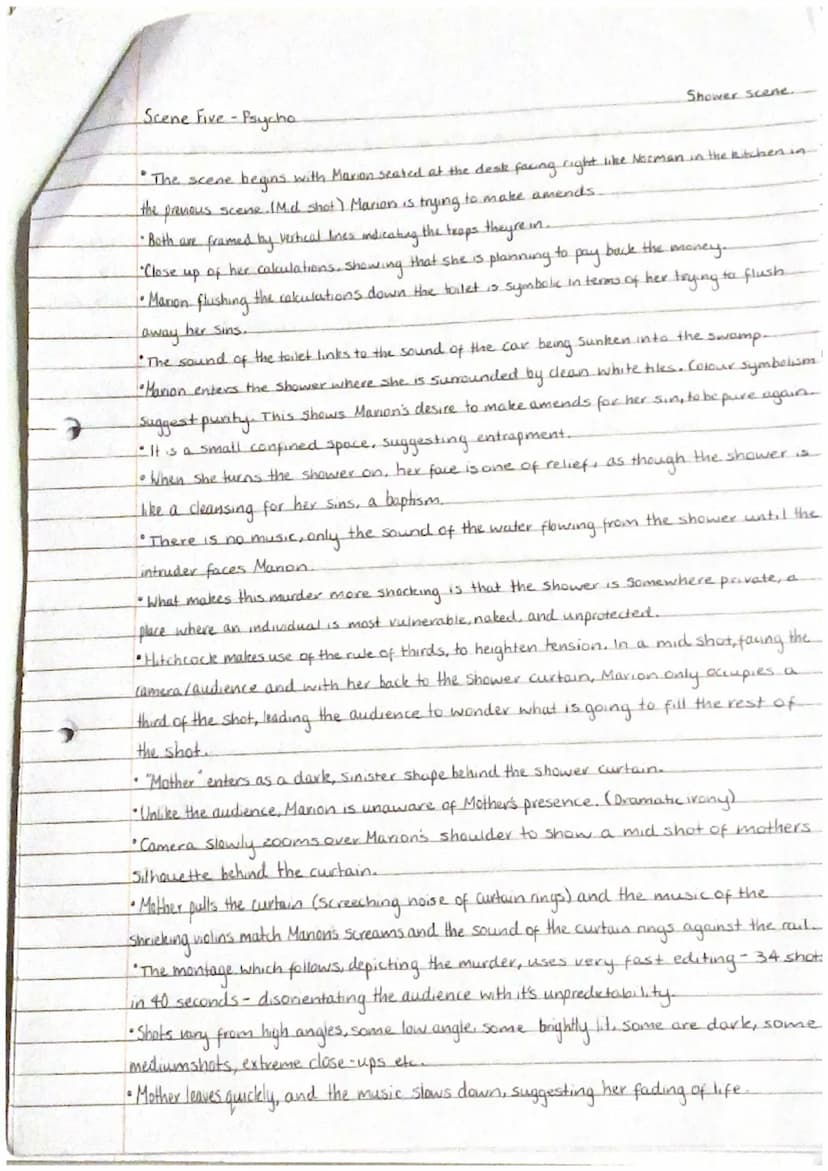 Shower scene.
Scene Five - Psycho
• The scene begins with Marion seated at the desk facing right like Norman in the kitchen in
the previous scene. (Mid shot) Marion is trying to make amends.
• Both are framed by vertical lines indicating the traps theyre in.
• Close up of her calculations, showing that she is planning to pay back the money.
• Marion flushing the calculations down the toilet is symbolic in terms of her trying to flush
away her sins.
• The sound of the toilet links to the sound of the car being sunken into the swamp.
• Marion enters the shower where she is surrounded by clean white tiles. Colour symbolism
suggest purity. This shows Marion's desire to make amends for her sin, to be pure again.
• It is a small confined space, suggesting entrapment.
• When she turns the shower on, her face is one of relief, as though the shower is
like a cleansing for her sins, a baptism.
• There is no music, only the sound of the water flowing from the shower until the
intruder faces Marion.
• What makes this murder more shocking is that the shower is somewhere private, a
place where an individual is most vulnerable, naked, and unprotected.
• Hitchcock makes use of the rule of thirds, to heighten tension. In a mid shot, facing the
camera/audience and with her back to the shower curtain, Marion only occupies a
third of the shot, leading the audience to wonder what is going to fill the rest of
the shot.
• "Mother" enters as a dark, sinister shape behind the shower curtain.
• Unlike the audience, Marion is unaware of Mother's presence. (Dramatic irony)
• Camera slowly zooms over Marion's shoulder to show a mid shot of mothers
silhouette behind the curtain.
• Mother pulls the curtain (screeching noise of curtain rings) and the music of the
shrieking violins match Marion's screams and the sound of the curtain rings against the rail.
• The montage which follows, depicting the murder, uses very fast editing - 34 shots
in 40 seconds - disorientating the audience with it's unpredictability.
• Shots vary from high angles, some low angle, some brightly lit, some are dark, some
medium shots, extreme close-ups etc.
• Mother leaves quickly, and the music slows down, suggesting her fading of life.